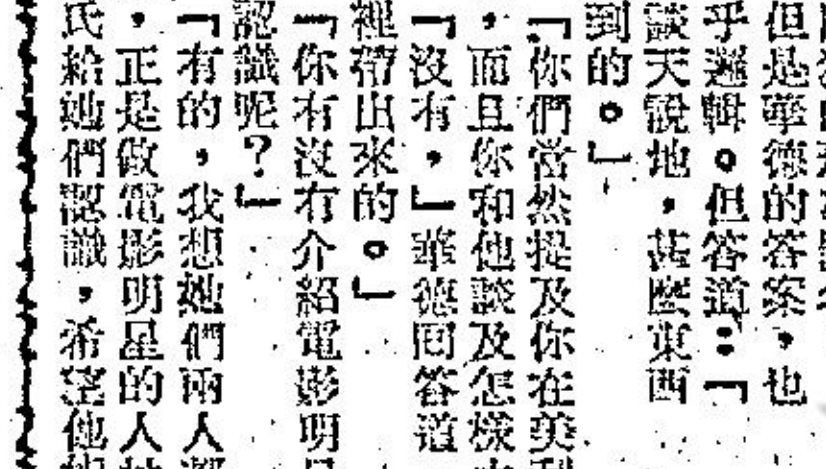 但是華德的答案,也
乎邏輯。但答道:「
談天說地,甚麼東西
到的。」
「你們當然提及你在美
,而且你和他談及怎樣
「沒有,」華德回答道
裡帶出來的。」
「你有沒有介紹電影明
認識呢?」
「有的,我想她們兩人
,正是做電影明星的人
氏給她們認識,希望他